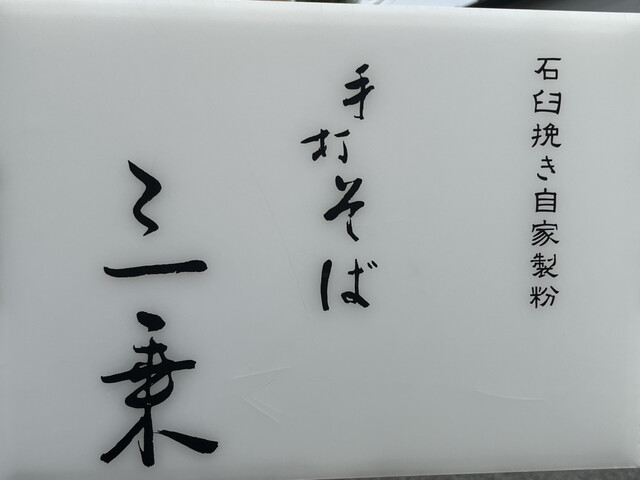 石臼挽き自家製粉
手打そば
三乗